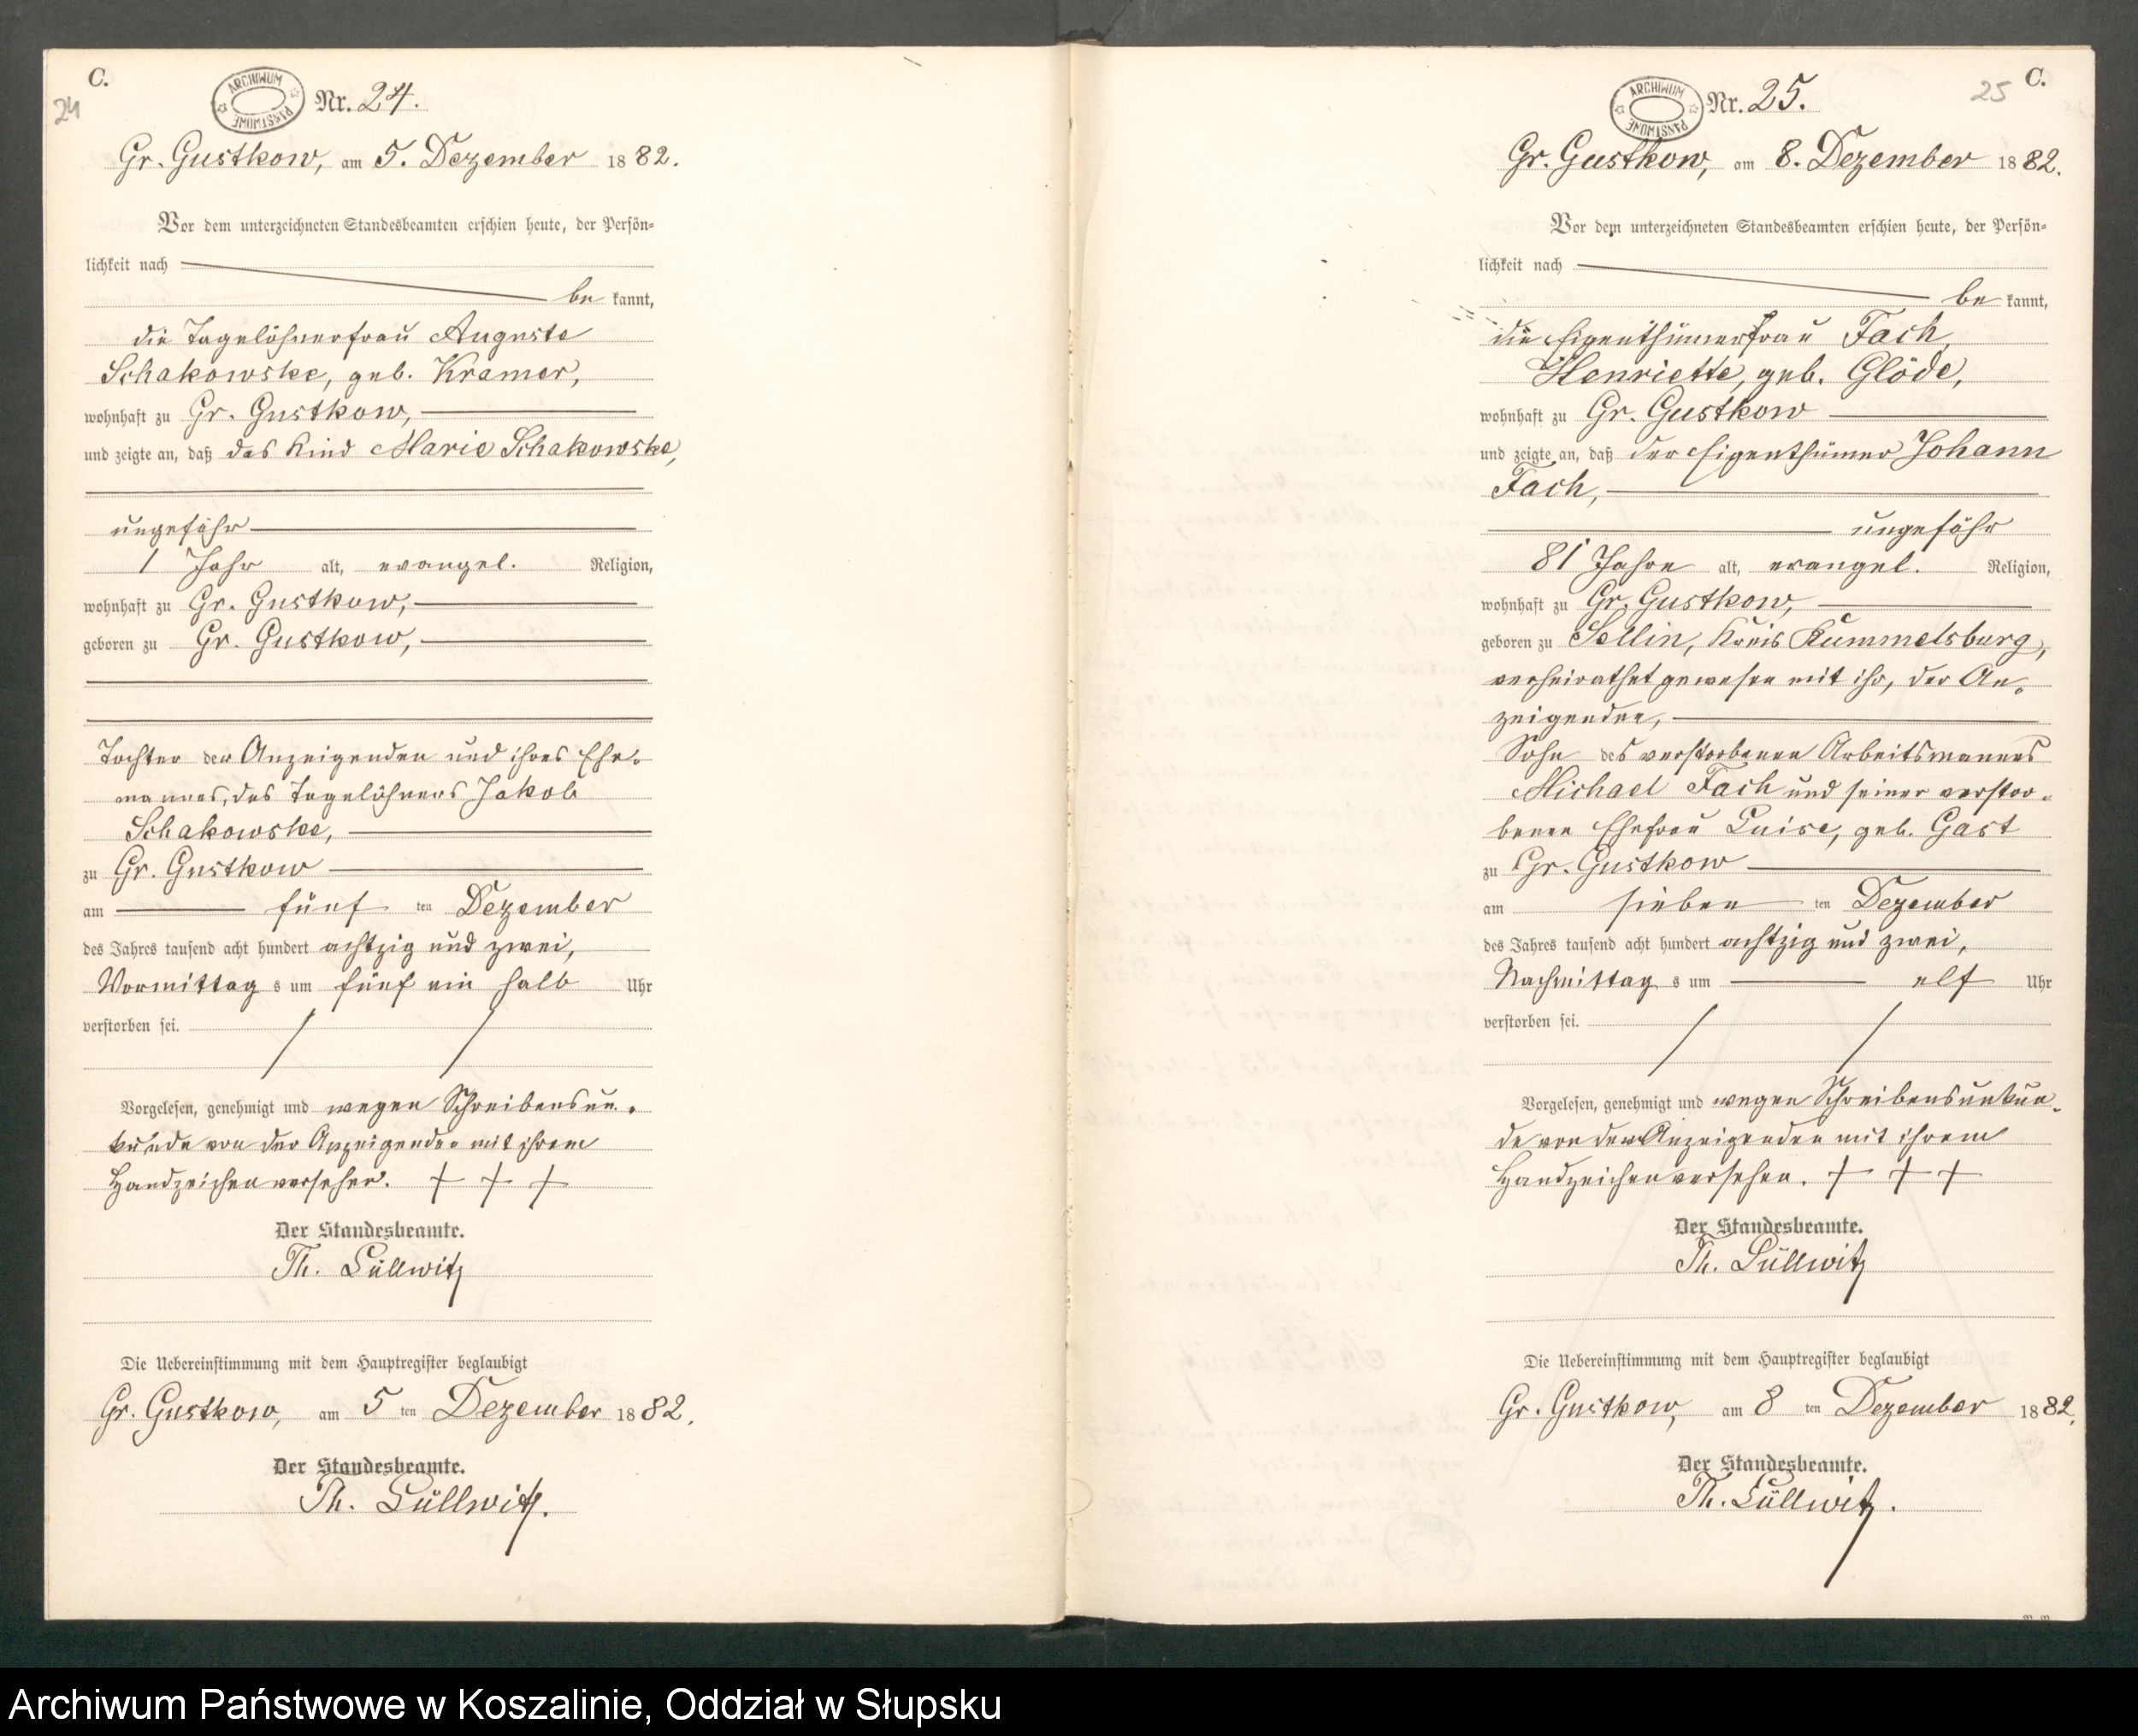 C.
24
ARCHIWUM PAŃSTWOWE
Nr. 24.
Gr. Gustkow, am 5. Dezember 1882.
Vor dem unterzeichneten Standesbeamten erschien heute, der Persön=
lichkeit nach
be kannt,
die Tagelöhnerfrau Auguste
Schakowske, geb. Kramer,
wohnhaft zu Gr. Gustkow,
und zeigte an, daß das Kind Marie Schakowske,
ungefähr
1 Jahr alt, evangel. Religion,
wohnhaft zu Gr. Gustkow,
geboren zu Gr. Gustkow,
Tochter der Anzeigenden und ihres Ehe-
mannes, des Tagelöhners Jakob
Schakowske,
zu Gr. Gustkow
am fünf ten Dezember
des Jahres tausend acht hundert achtzig und zwei,
Vormittag s um fünf ein halb Uhr
verstorben sei.
Vorgelesen, genehmigt und wegen Schreibensun-
kunde von der Anzeigenden mit ihrem
Handzeichen versehen. + + +
Der Standesbeamte.
Th. Lüllwitz
Die Uebereinstimmung mit dem Hauptregister beglaubigt
Gr. Gustkow, am 5 ten Dezember 1882.
Der Standesbeamte.
Th. Lüllwitz.
C.
25
ARCHIWUM PAŃSTWOWE
Nr. 25.
Gr. Gustkow, am 8. Dezember 1882.
Vor dem unterzeichneten Standesbeamten erschien heute, der Persön=
lichkeit nach
be kannt,
die Eigenthümerfrau Fach,
Henriette, geb. Glöde,
wohnhaft zu Gr. Gustkow
und zeigte an, daß der Eigenthümer Johann
Fach,
ungefähr
81 Jahre alt, evangel. Religion,
wohnhaft zu Gr. Gustkow,
geboren zu Sellin, Kreis Rummelsburg,
verheirathet gewesen mit ihr, der An-
zeigenden,
Sohn des verstorbenen Arbeitsmannes
Michael Fach und seiner verstor-
benen Ehefrau Luise, geb. Gast
zu Gr. Gustkow
am sieben ten Dezember
des Jahres tausend acht hundert achtzig und zwei,
Nachmittag s um elf Uhr
verstorben sei.
Vorgelesen, genehmigt und wegen Schreibensunkun-
de von der Anzeigenden mit ihrem
Handzeichen versehen. + + +
Der Standesbeamte.
Th. Lüllwitz
Die Uebereinstimmung mit dem Hauptregister beglaubigt
Gr. Gustkow, am 8 ten Dezember 1882.
Der Standesbeamte.
Th. Lüllwitz.
Archiwum Państwowe w Koszalinie, Oddział w Słupsku